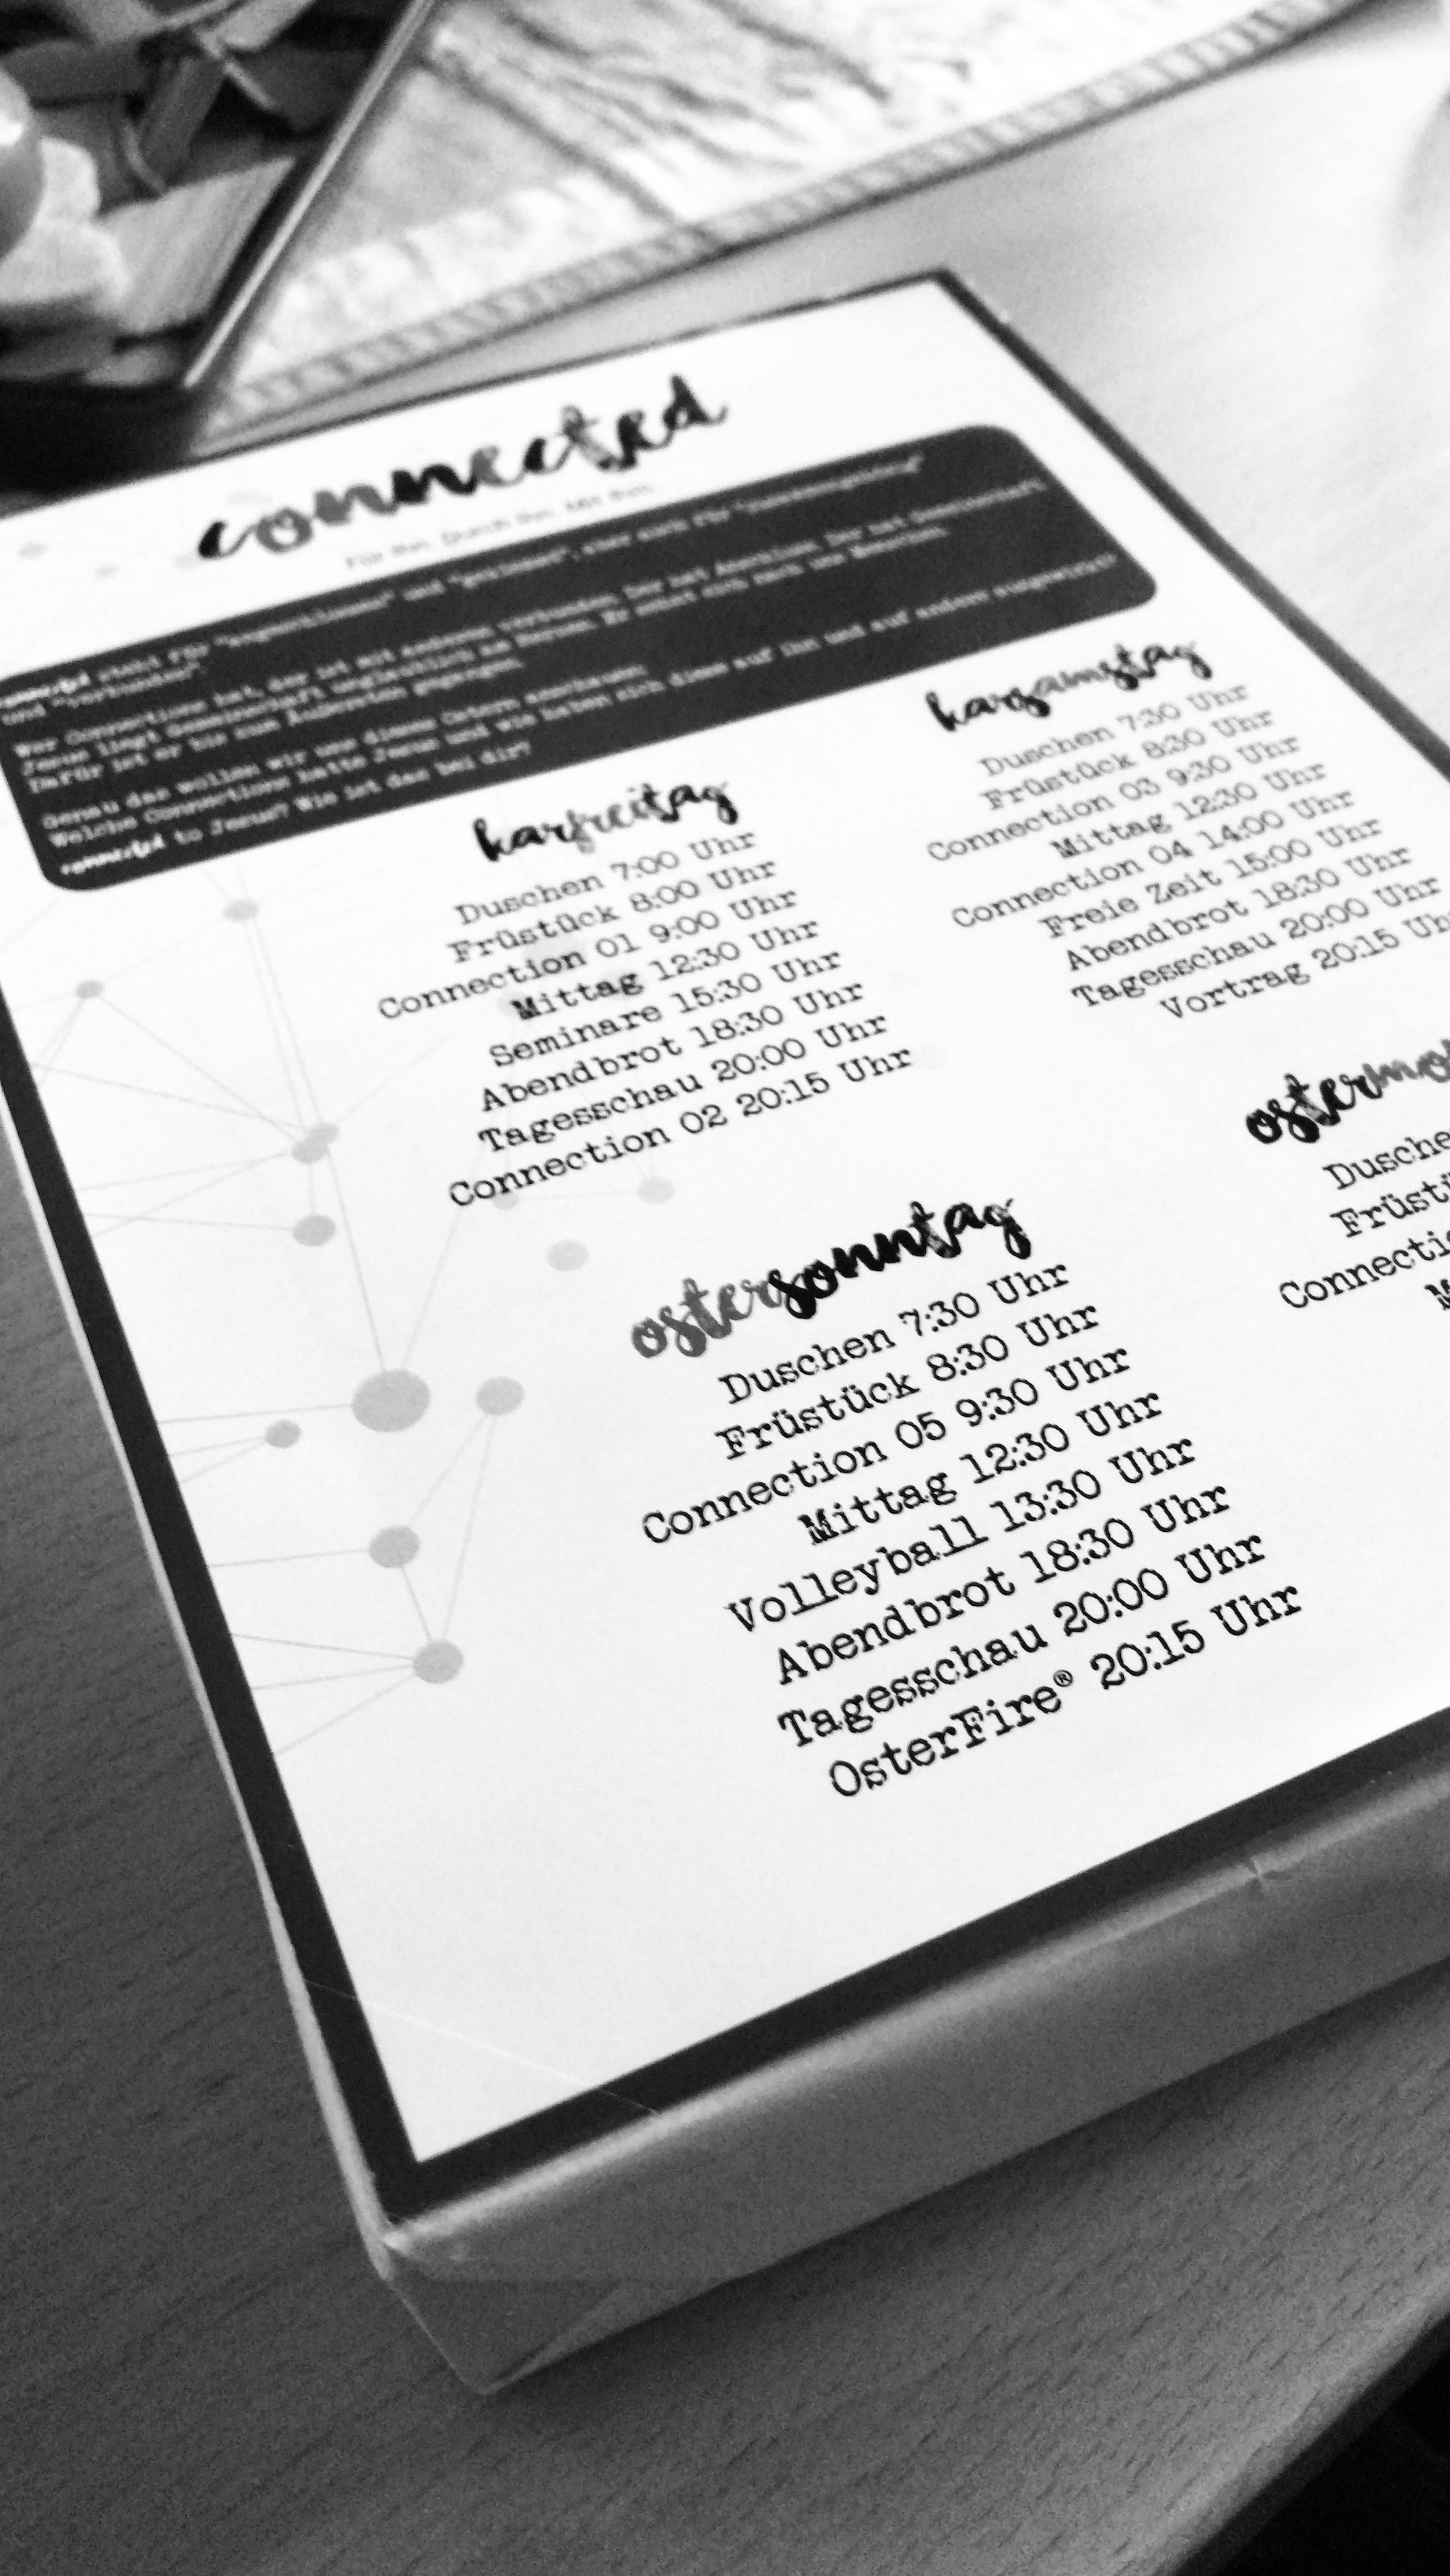 connected
Für Ihn. Durch Ihn. Mit Ihm.
connected steht für "angeschlossen" und "gebunden", aber auch für "zusammengehörend"
und "verbunden".
Wer Connections hat, der ist mit anderen verbunden. Der hat Anschluss. Der hat Gemeinschaft.
Jesus liegt Gemeinschaft unglaublich am Herzen. Er sehnt sich nach uns Menschen.
Dafür ist er bis zum Äußersten gegangen.
Genau das wollen wir uns dieses Ostern anschauen:
Welche Connections hatte Jesus und wie haben sich diese auf ihn und auf andere ausgewirkt?
connected to Jesus? Wie ist das bei dir?
karfreitag
Duschen 7:00 Uhr
Früstück 8:00 Uhr
Connection 01 9:00 Uhr
Mittag 12:30 Uhr
Seminare 15:30 Uhr
Abendbrot 18:30 Uhr
Tagesschau 20:00 Uhr
Connection 02 20:15 Uhr
karsamstag
Duschen 7:30 Uhr
Früstück 8:30 Uhr
Connection 03 9:30 Uhr
Mittag 12:30 Uhr
Connection 04 14:00 Uhr
Freie Zeit 15:00 Uhr
Abendbrot 18:30 Uhr
Tagesschau 20:00 Uhr
Vortrag 20:15 Uh
ostersonntag
Duschen 7:30 Uhr
Früstück 8:30 Uhr
Connection 05 9:30 Uhr
Mittag 12:30 Uhr
Volleyball 13:30 Uhr
Abendbrot 18:30 Uhr
Tagesschau 20:00 Uhr
OsterFire® 20:15 Uhr
ostermo
Dusche
Früstü
Connectio
M